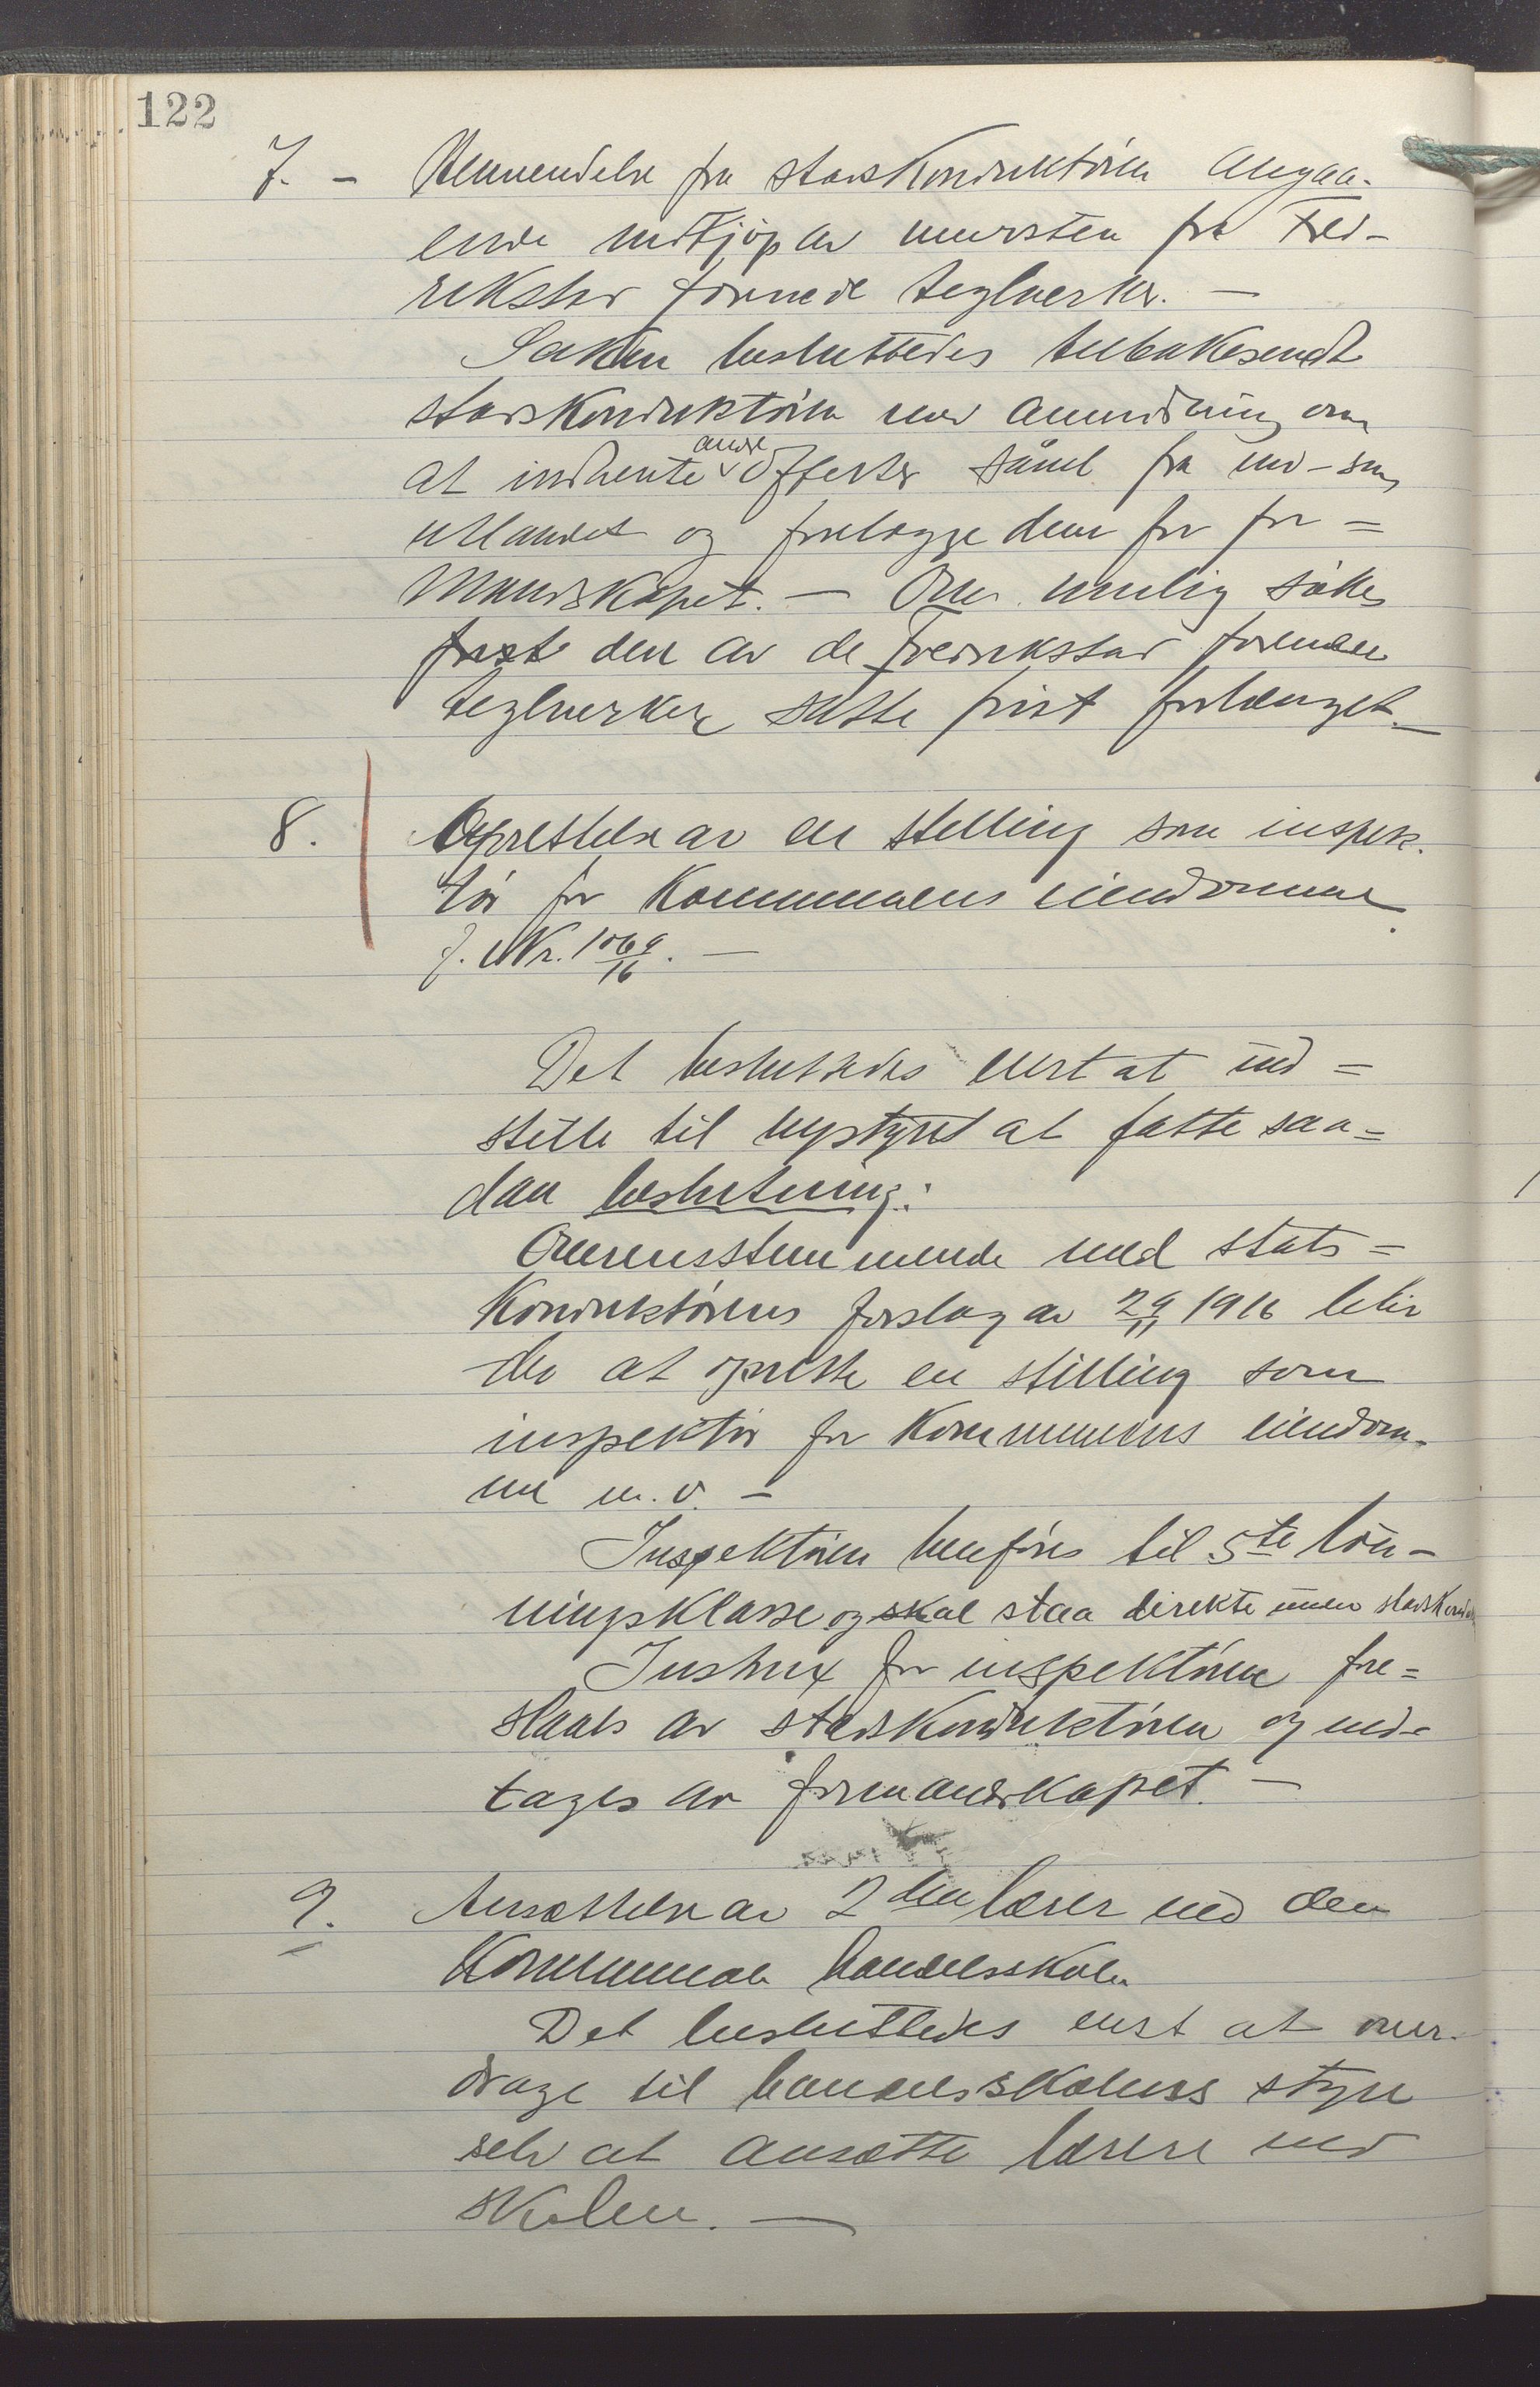 122
7. - Henvendelse fra stadskonduktören angaa-
ende indkjöp av mursten fra Fred-
rikstad forenede teglverker. -
Saken besluttedes tilbakesendt
stadskonduktören med anmodning om
andre
at indhente offerter såvel fra ind- som
utlandet og forelægge dem for for=
mandskapet. - Om mulig sökes
den av de Fredrikstad forenede
teglverker satte frist forlænget. -
8. Oprettelse av en stilling som inspek-
tör for kommunens eiendomme.
J. Nr. 1069/16. -
Det besluttedes enst at ind=
stille til bystyret at fatte saa=
dan beslutning:
Overensstemmende med stads=
konduktörens forslag av 29/11 1916 blir
der at oprette en stilling som
inspektör for kommunens eiendom-
me m.v. -
Inspektören henföres til 5te lön-
ningsklasse og skal staa direkte under stadskonduk
Instrux for inspektören fore=
slaaes av stadskonduktören og ved-
tages av formandskapet. -
9. Ansættelse av 2den lærer ved den
kommunale handelsskole
Det besluttedes enst at over-
drage til handelsskolens styre
selv at ansætte lærere ved
skolen. -